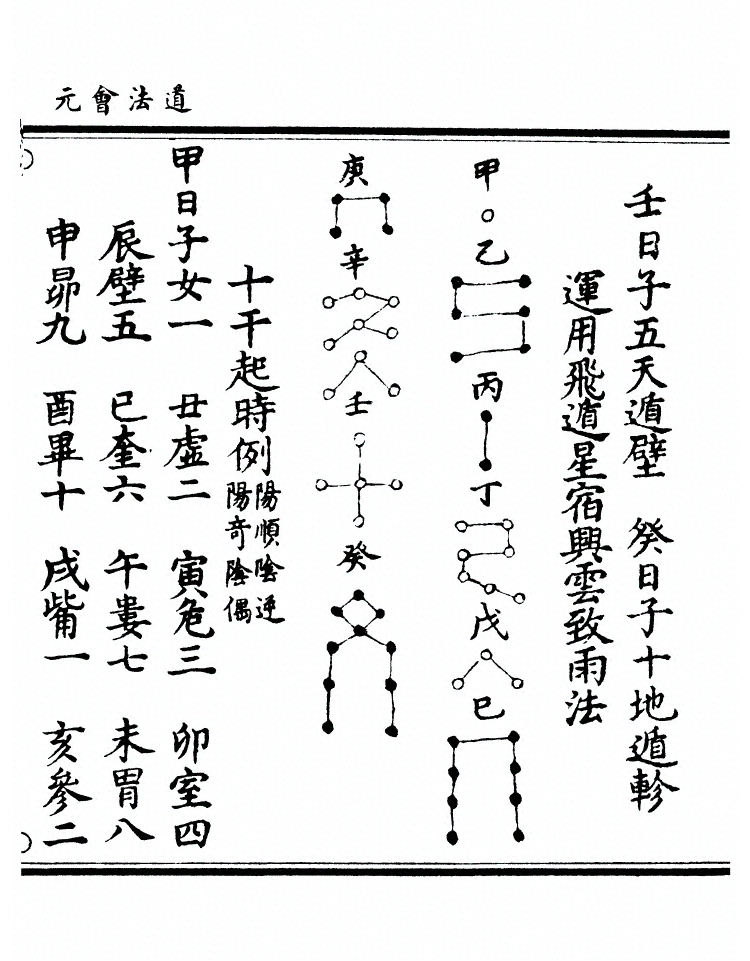 道法會元
壬日子五天遁壁　癸日子十地遁軫
運用飛遁星宿興雲致雨法
甲乙丙丁戊巳
庚辛壬癸
十干起時例陽順陰逆陽奇陰偶
甲日子女一　丑虛二　寅危三　卯室四
辰壁五　巳奎六　午婁七　未胃八
申昴九　酉畢十　戌觜一　亥參二